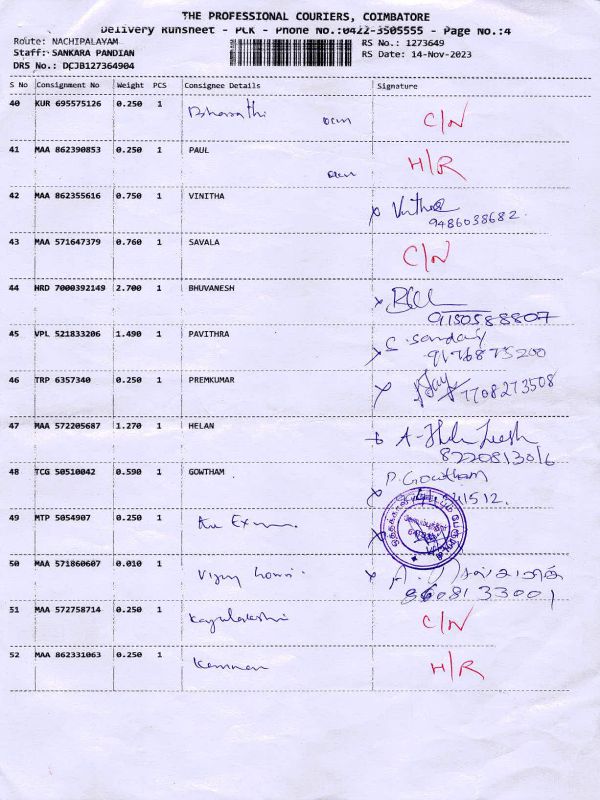 THE PROFESSIONAL COURIERS, COIMBATORE
Delivery Runsheet - PCR - Phone No.:0422-3505555 - Page No.:4
Route: NACHIPALAYAM
RS No.: 1273649
Staff: SANKARA PANDIAN
RS Date: 14-Nov-2023
DRS No.: DCJB127364904
S No Consignment No Weight PCS Consignee Details Signature
40 KUR 695575126 0.250 1 Bharathi C/N
41 MAA 862390853 0.250 1 PAUL H/R
42 MAA 862355616 0.750 1 VINITHA Vinitha
9486038682
43 MAA 571647379 0.760 1 SAVALA C/N
44 HRD 7000392149 2.700 1 BHUVANESH
9150588807
45 VPL 521833206 1.490 1 PAVITHRA
9176875200
46 TRP 6357340 0.250 1 PREMKUMAR 7708273508
47 MAA 572205687 1.270 1 HELAN
8220813016
48 TCG 50510042 0.590 1 GOWTHAM P. Gowtham
49 MTP 5054907 0.250 1
50 MAA 571860607 0.010 1 Vijay
51 MAA 572758714 0.250 1 C/N
52 MAA 862331063 0.250 1 Kannan H/R